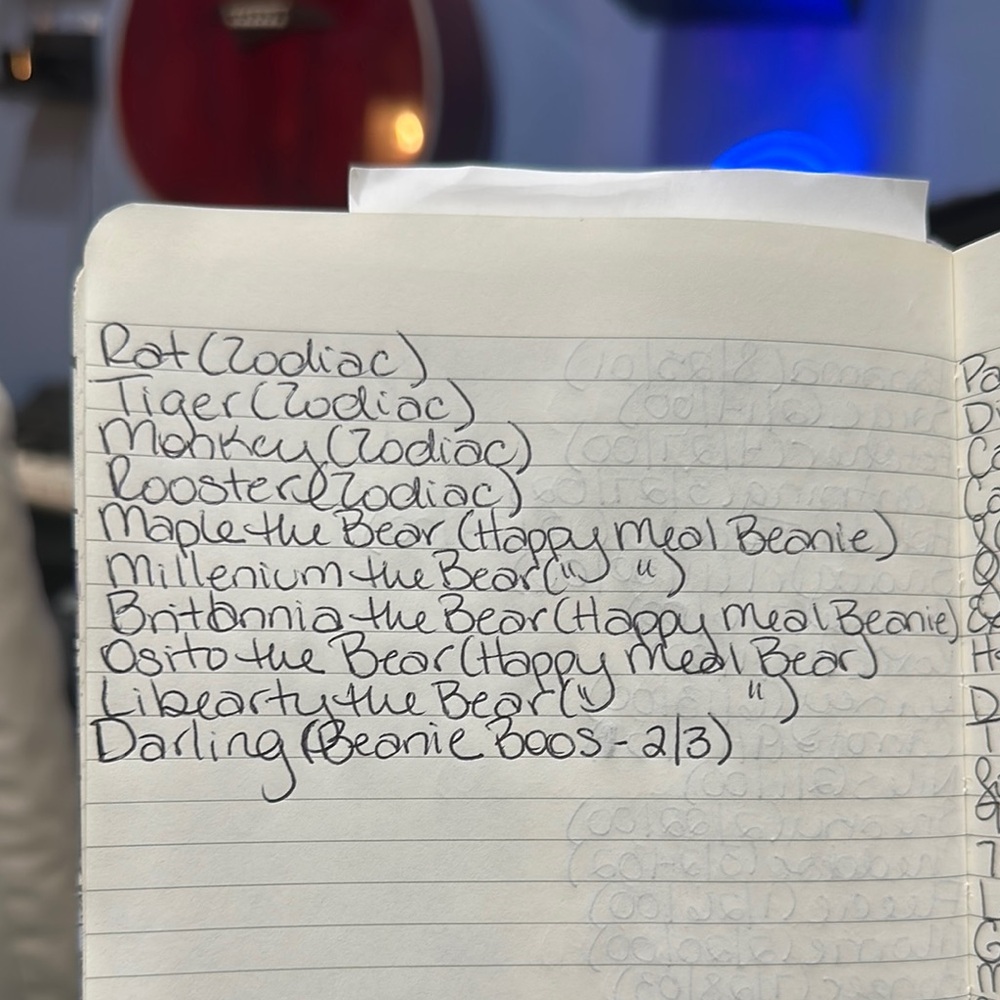 Rat (Zodiac)
Tiger (Zodiac)
Monkey (Zodiac)
Rooster (Zodiac)
Maple the Bear (Happy Meal Beanie)
Millenium the Bear (" ")
Britannia the Bear (Happy Meal Beanie)
Osito the Bear (Happy Meal Bear)
Libearty the Bear (" ")
Darling (Beanie Boos - 2/3)